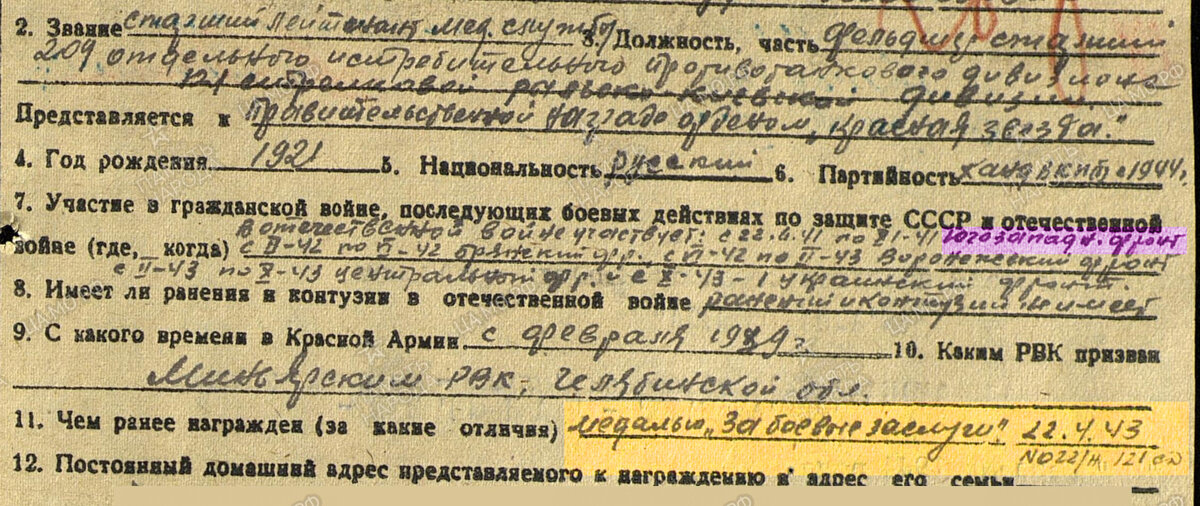 2. Звание старший лейтенант мед. службы 3. Должность, часть фельдшер старший
209 отдельного истребительного противотанкового дивизиона
121 стрелковой рыльско киевской дивизии.
Представляется к правительственной награде орденом „Красная звезда."
4. Год рождения 1921 5. Национальность русский 6. Партийность канд вкпб с 1944г.
7. Участие в гражданской войне, последующих боевых действиях по защите СССР и отечественной
в отечественной войне участвует: с 22.6.41 по XI-41 Югозападн. фронт
войне (где, когда) с II-42 по VI-42 Брянский фр., с VI-42 по II-43 Воронежский фронт
с II-43 по X-43 центральный фр. и с X-43 - 1 украинский фронт.
8. Имеет ли ранения и контузии в отечественной войне ранений и контузий не имеет
9. С какого времени в Красной Армии с февраля 1939г. 10. Каким РВК призван
Миньярским РВК, Челябинской обл.
11. Чем ранее награжден (за какие отличия) медалью „За боевые заслуги" 22.4.43
№022/н. 121 сд
12. Постоянный домашний адрес представляемого к награждению и адрес его семьи